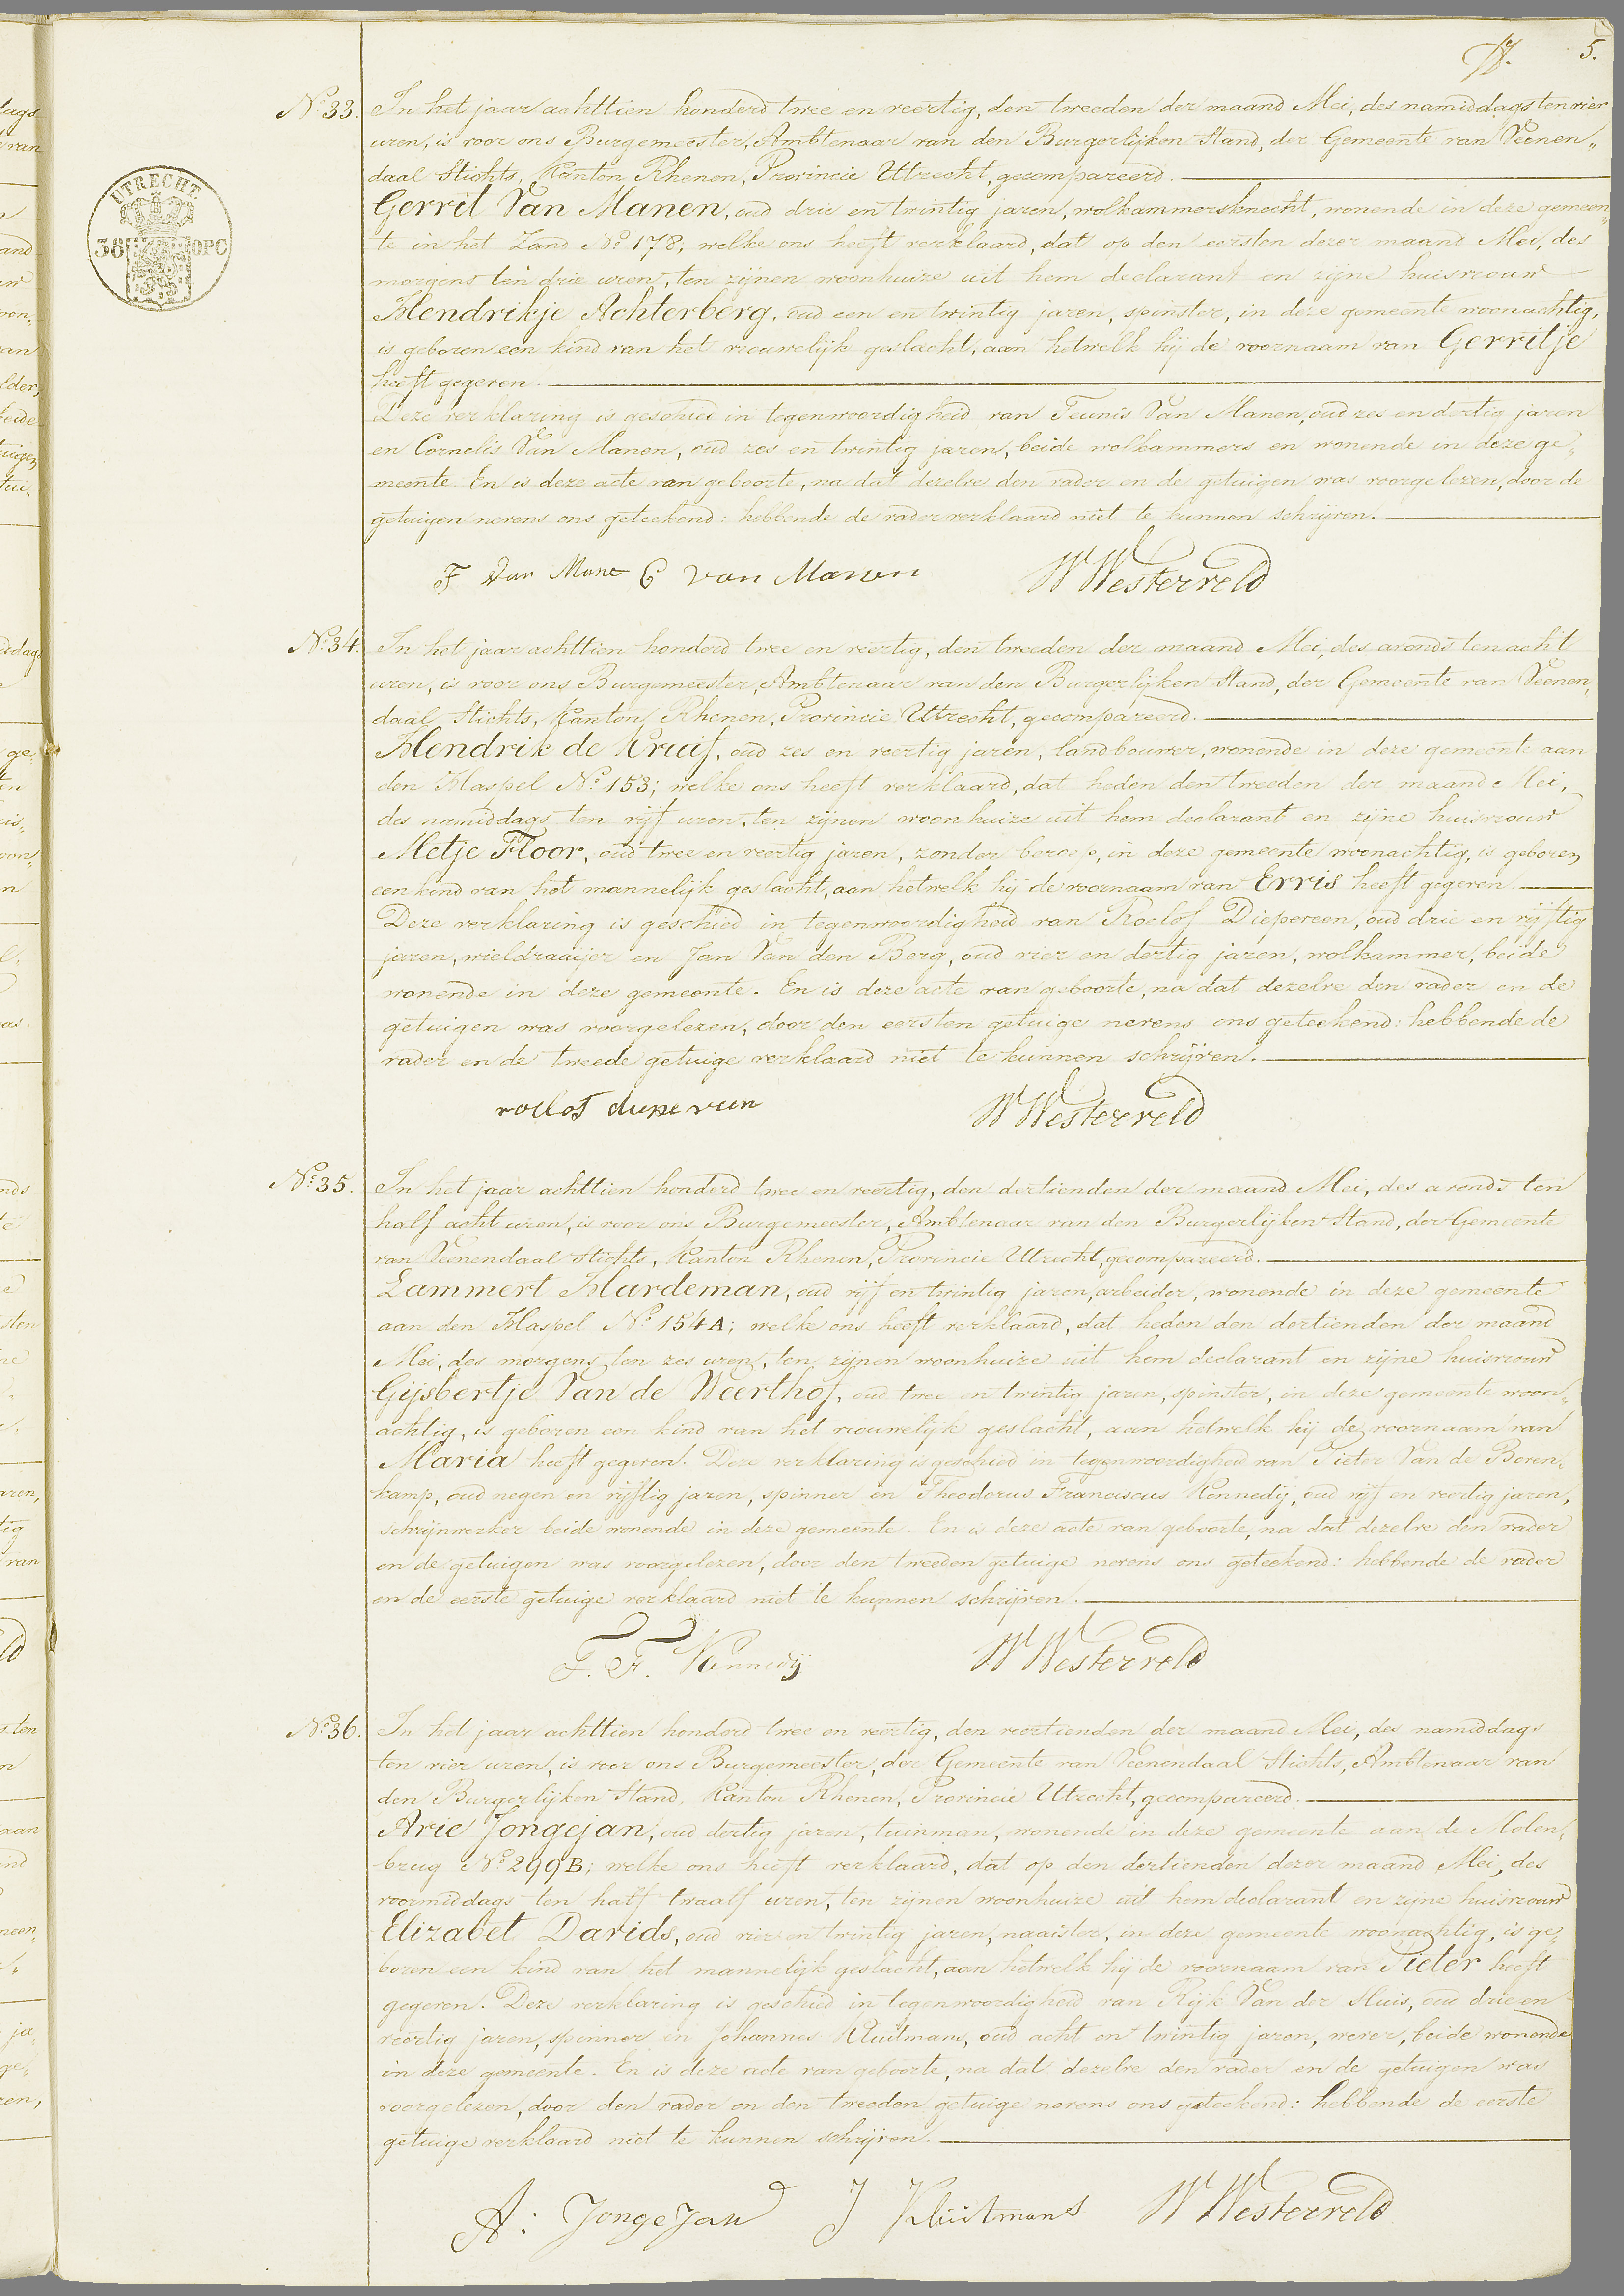 5.
UTRECHT
38 OPC
No. 33. In het jaar achttien honderd twee en veertig, den tweeden der maand Mei, des namiddags ten vier
uren, is voor ons Burgemeester, Ambtenaar van den Burgerlijken Stand, der Gemeente van Veenen„
daal Stichts, Kanton Rhenen, Provincie Utrecht, gecompareerd.
Gerrit Van Manen, oud drie en twintig jaren, wolkammersknecht, wonende in deze gemeen„
te in het Zand No. 178; welke ons heeft verklaard, dat op den eersten dezer maand Mei, des
morgens ten drie uren, ten zijnen woonhuize uit hem declarant en zijne huisvrouw
Hendrikje Achterberg, oud een en twintig jaren, spinster, in deze gemeente woonachtig,
is geboren een kind van het vrouwelijk geslacht, aan hetwelk hij de voornaam van Gerritje
heeft gegeven.
Deze verklaring is geschied in tegenwoordigheid van Teunis Van Manen, oud zes en dertig jaren
en Cornelis Van Manen, oud zes en twintig jaren, beide wolkammers en wonende in deze ge„
meente. En is deze acte van geboorte, na dat dezelve den vader en de getuigen was voorgelezen, door de
getuigen nevens ons geteekend: hebbende de vader verklaard niet te kunnen schrijven.
T Van Mane C van Manen W Westerveld
No. 34. In het jaar achttien honderd twee en veertig, den tweeden der maand Mei, des avonds ten acht
uren, is voor ons Burgemeester, Ambtenaar van den Burgerlijken Stand, der Gemeente van Veenen„
daal Stichts, Kanton Rhenen, Provincie Utrecht, gecompareerd.
Hendrik de Kruif, oud zes en veertig jaren, landbouwer, wonende in deze gemeente aan
den Haspel No. 153; welke ons heeft verklaard, dat heden den tweeden der maand Mei,
des namiddags ten vijf uren, ten zijnen woonhuize uit hem declarant en zijne huisvrouw
Metje Floor, oud twee en veertig jaren, zonder beroep, in deze gemeente woonachtig, is geboren
een kind van het mannelijk geslacht, aan hetwelk hij de voornaam van Evris heeft gegeven.
Deze verklaring is geschied in tegenwoordigheid van Roelof Diepeveen, oud drie en vijftig
jaren, wieldraaijer en Jan Van den Berg, oud vier en dertig jaren, wolkammer, beide
wonende in deze gemeente. En is deze acte van geboorte, na dat dezelve den vader en de
getuigen was voorgelezen, door den eersten getuige nevens ons geteekend: hebbende de
vader en de tweede getuige verklaard niet te kunnen schrijven.
roelof W Westerveld
No. 35. In het jaar achttien honderd twee en veertig, den dertienden der maand Mei, des avonds ten
half acht uren, is voor ons Burgemeester, Ambtenaar van den Burgerlijken Stand, der Gemeente
van Veenendaal Stichts, Kanton Rhenen, Provincie Utrecht, gecompareerd.
Lammert Hardeman, oud vijf en twintig jaren, arbeider, wonende in deze gemeente
aan den Haspel No. 154A; welke ons heeft verklaard, dat heden den dertienden der maand
Mei, des morgens ten zes uren, ten zijnen woonhuize uit hem declarant en zijne huisvrouw
Gijsbertje Van de Weerthof, oud twee en twintig jaren, spinster, in deze gemeente woon„
achtig, is geboren een kind van het vrouwelijk geslacht, aan hetwelk hij de voornaam van
Maria heeft gegeven. Deze verklaring is geschied in tegenwoordigheid van Pieter Van de Boven„
kamp, oud negen en vijftig jaren, spinner en Theodorus Franciscus Kennedij, oud vijf en veertig jaren,
schrijnwerker beide wonende in deze gemeente. En is deze acte van geboorte, na dat dezelve den vader
en de getuigen was voorgelezen, door den tweeden getuige nevens ons geteekend: hebbende de vader
en de eerste getuige verklaard niet te kunnen schrijven.
T. F. Kennedij W Westerveld
No. 36. In het jaar achttien honderd twee en veertig, den veertienden der maand Mei, des namiddags
ten vier uren, is voor ons Burgemeester, der Gemeente van Veenendaal Stichts, Ambtenaar van
den Burgerlijken Stand, Kanton Rhenen, Provincie Utrecht, gecompareerd.
Arie Jongejan, oud dertig jaren, tuinman, wonende in deze gemeente aan de Molen„
brug No. 299B; welke ons heeft verklaard, dat op den dertienden dezer maand Mei, des
voormiddags ten half twaalf uren, ten zijnen woonhuize uit hem declarant en zijne huisvrouw
Elizabet Davids, oud vier en twintig jaren, naaister, in deze gemeente woonachtig, is ge„
boren een kind van het mannelijk geslacht, aan hetwelk hij de voornaam van Pieter heeft
gegeven. Deze verklaring is geschied in tegenwoordigheid van Rijk Van der Sluis, oud drie en
veertig jaren, spinner en Johannes Kluitmans, oud acht en twintig jaren, wever, beide wonende
in deze gemeente. En is deze acte van geboorte, na dat dezelve den vader en de getuigen was
voorgelezen, door den vader en den tweeden getuige nevens ons geteekend: hebbende de eerste
getuige verklaard niet te kunnen schrijven.
A: JongeJan J Kluitmans W Westerveld